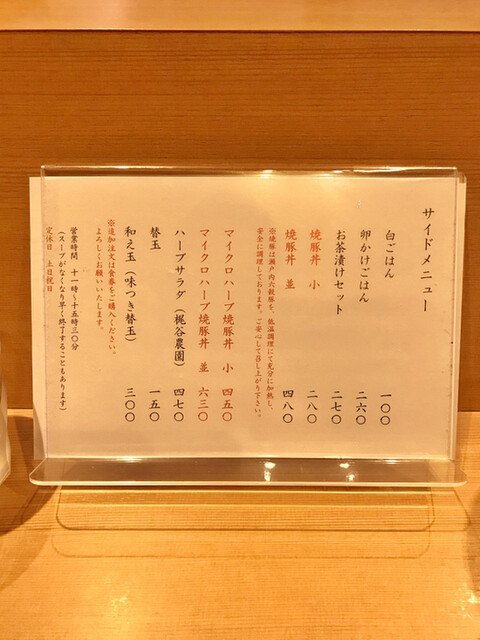 サイドメニュー
白ごはん 一〇〇
卵かけごはん 二六〇
お茶漬けセット 二七〇
焼豚丼 小 二八〇
焼豚丼 並 四八〇
※焼豚は瀬戸内六穀豚を、低温調理にて充分に加熱し、
安全に調理しております。ご安心して召し上がり下さい。
マイクロハーブ焼豚丼 小 四五〇
マイクロハーブ焼豚丼 並 六三〇
ハーブサラダ(梶谷農園) 四七〇
替玉 一五〇
和え玉(味つき替玉) 三〇〇
※追加注文は食券をご購入ください。
よろしくお願いいたします。
営業時間 十一時〜十五時三〇分
(スープがなくなり早く終了することもあります)
定休日 土日祝日